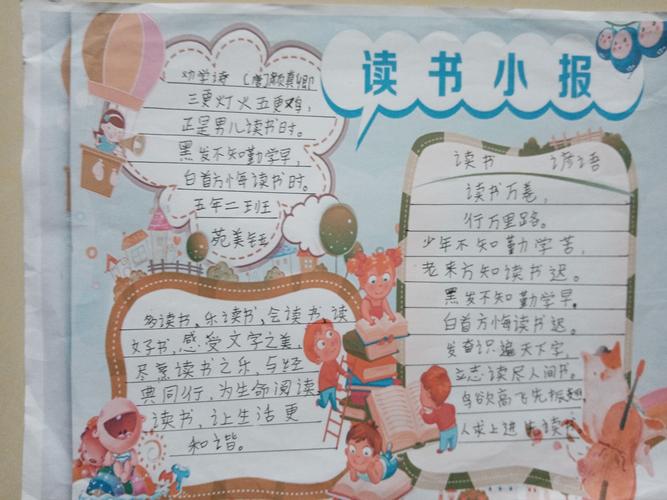 读书小报
劝学诗 (唐)颜真卿
三更灯火五更鸡,
正是男儿读书时。
黑发不知勤学早,
白首方悔读书时。
五年二班
苑美钰
多读书、乐读书、会读书、读
好书,感受文字之美,
尽享读书之乐,与经
典同行,为生命阅读
读书,让生活更
和谐。
读书 谚语
读书万卷,
行万里路。
少年不知勤学苦,
老来方知读书迟。
黑发不知勤学早,
白首方悔读书迟。
发奋识遍天下字,
立志读尽人间书。
鸟欲高飞先振翅
人求上进先读书